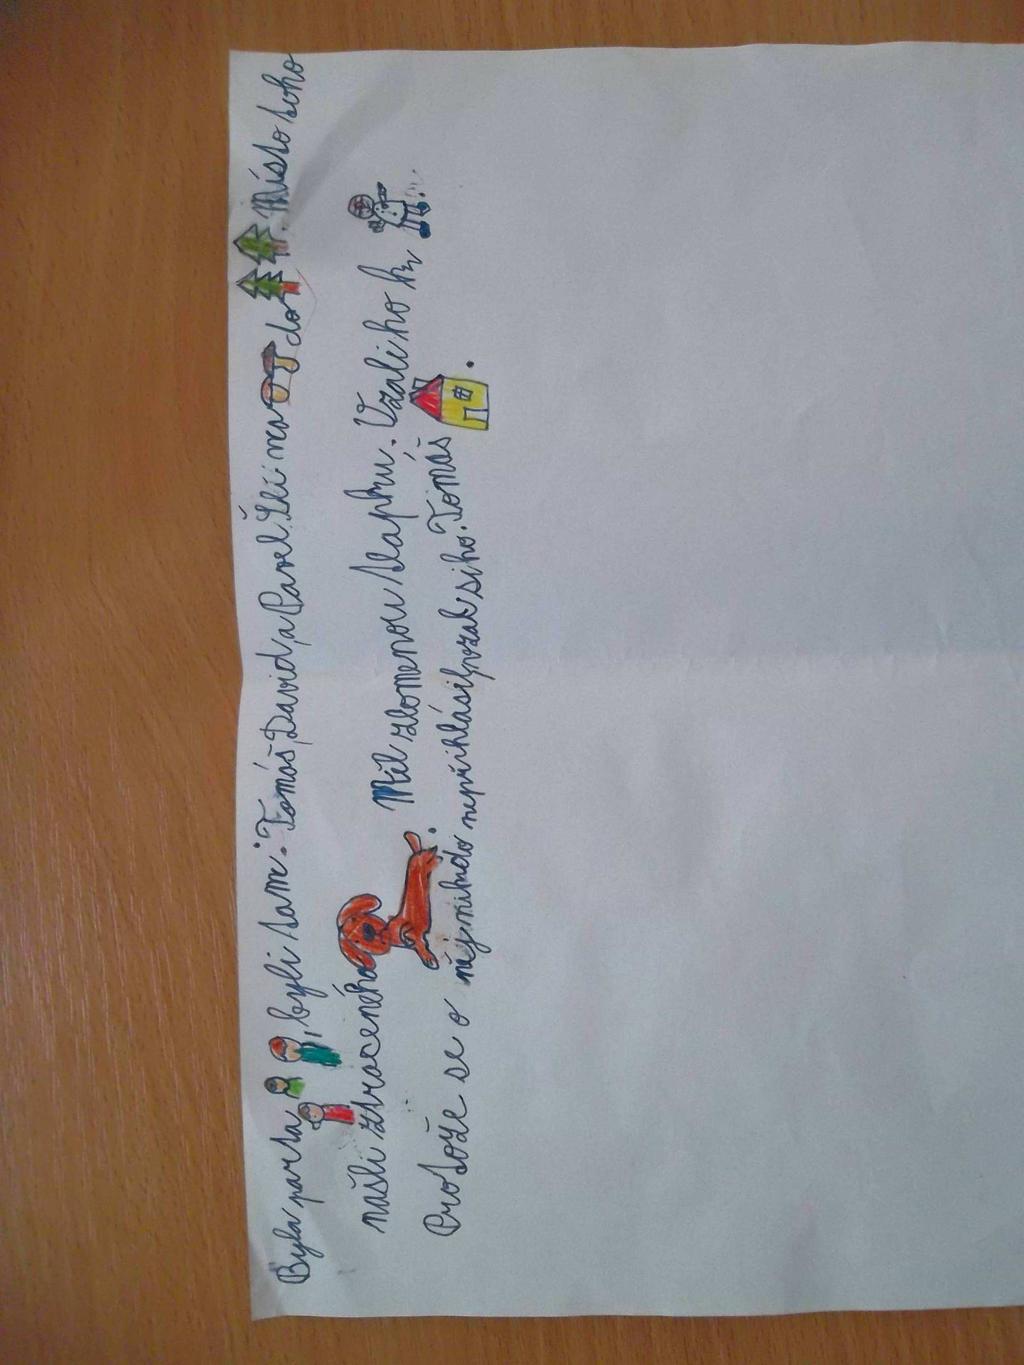 Byla parta, byli tam: Tomáš, David, a Pavel. Šli na do. Místo toho
našli ztraceného. Měl zlomenou tlapku. Vzali ho k
Protože se o něj nikdo nepřihlásil, vzal si ho Tomáš.